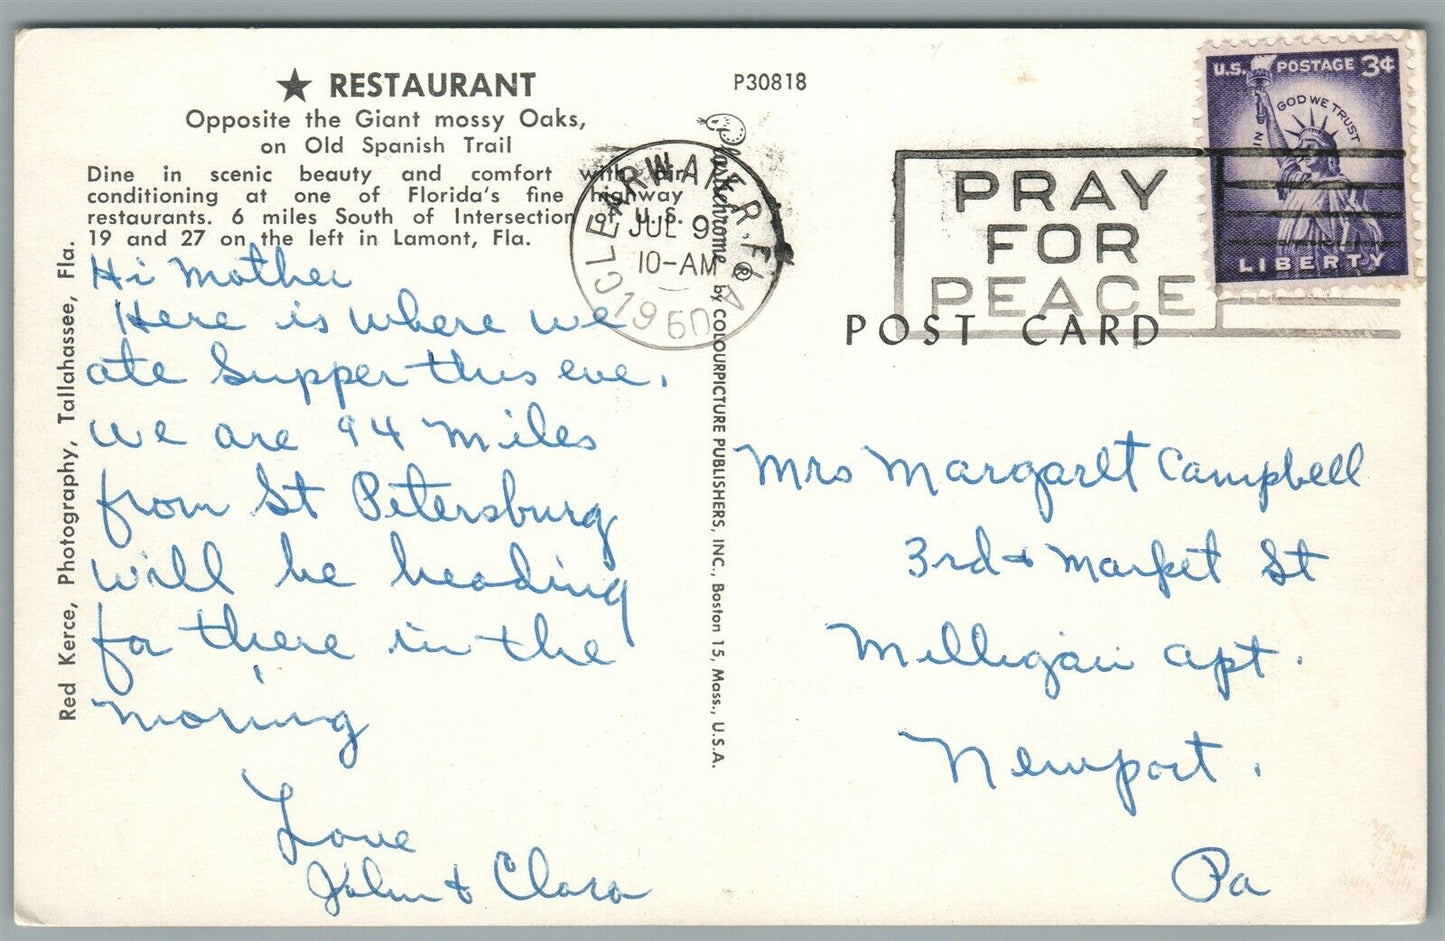 ★ RESTAURANT
Opposite the Giant mossy Oaks,
on Old Spanish Trail
Dine in scenic beauty and comfort with air
conditioning at one of Florida's fine highway
restaurants. 6 miles South of Intersection of U. S.
19 and 27 on the left in Lamont, Fla.
Red Kerce, Photography, Tallahassee, Fla.
Hi Mother
Here is where we
ate Supper this eve.
we are 94 miles
from St Petersburg
will be heading
for there in the
moring
Love
John & Clara
P30818
Plastichrome ® by COLOURPICTURE PUBLISHERS, INC., Boston 15, Mass., U.S.A.
CLEARWATER, FLA
JUL 9
10-AM
1960
PRAY
FOR
PEACE
U.S. POSTAGE 3¢
IN GOD WE TRUST
LIBERTY
POST CARD
Mrs Margaret Campbell
3rd & Market St
Milligan apt.
Newport.
Pa